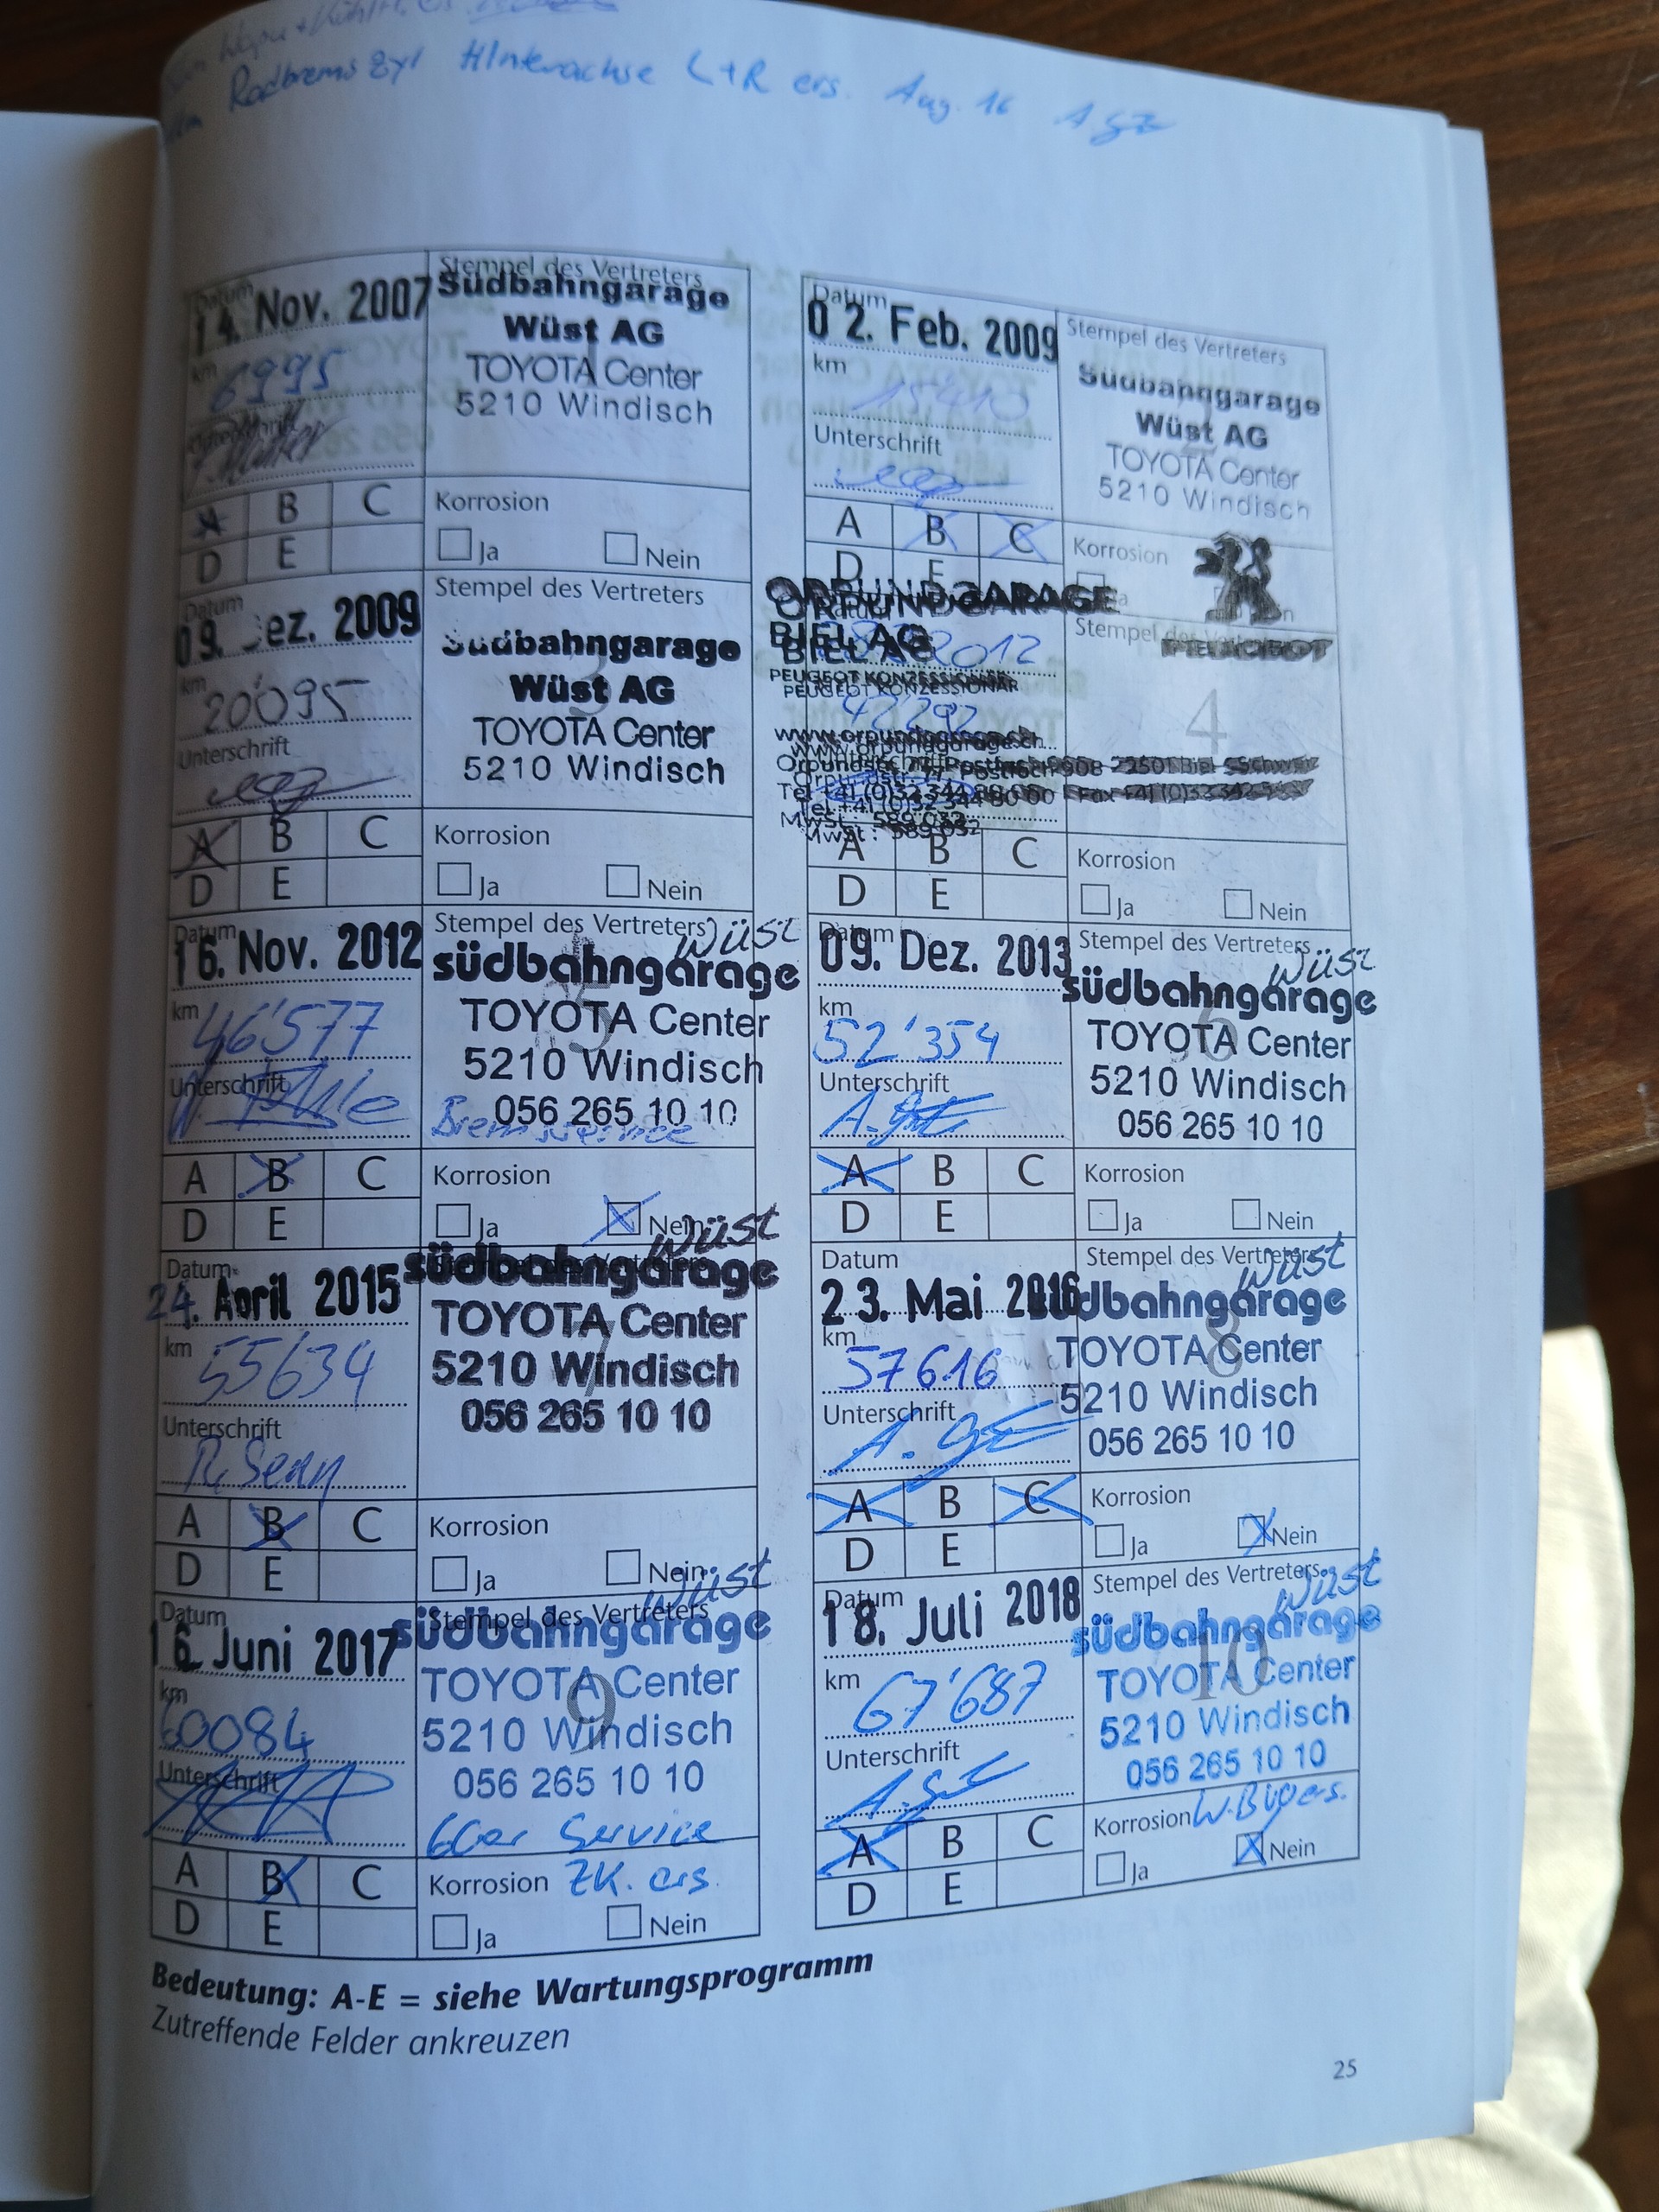 Radbrems Zyl Hinterachse L+R ers. Aug. 16
Datum
14. Nov. 2007
km
6995
Unterschrift
Stempel des Vertreters
Südbahngarage
Wüst AG
TOYOTA Center
5210 Windisch
1
A B C
D E
Korrosion
Ja Nein
Datum
02. Feb. 2009
km
15410
Unterschrift
Stempel des Vertreters
Südbahngarage
Wüst AG
TOYOTA Center
5210 Windisch
A B C
D E
Korrosion
Datum
09. Dez. 2009
km
20'095
Unterschrift
Stempel des Vertreters
Südbahngarage
Wüst AG
TOYOTA Center
5210 Windisch
3
A B C
D E
Korrosion
Ja Nein
ORPUNDGARAGE
BIEL AG
2012
PEUGEOT KONZESSIONÄR
42292
www.orpundgarage.ch
Orpundstr. 77, Postfach 908 2501 Biel
Tel +41 (0)32 344 80 00
MwSt: 589 032
Stempel des Vertreters
PEUGEOT
4
A B C
D E
Korrosion
Ja Nein
Datum
16. Nov. 2012
km
46'577
Unterschrift
Stempel des Vertreters
Wüst
südbahngarage
TOYOTA Center
5210 Windisch
056 265 10 10
Bremsservice
5
A B C
D E
Korrosion
Ja Nein
Datum
09. Dez. 2013
km
52'354
Unterschrift
Stempel des Vertreters
Wüst
südbahngarage
TOYOTA Center
5210 Windisch
056 265 10 10
6
A B C
D E
Korrosion
Ja Nein
Datum
24. April 2015
km
55634
Unterschrift
Wüst
südbahngarage
TOYOTA Center
5210 Windisch
056 265 10 10
7
A B C
D E
Korrosion
Ja Nein
Datum
23. Mai 2016
km
57616
Unterschrift
Stempel des Vertreters
Wüst
südbahngarage
TOYOTA Center
5210 Windisch
056 265 10 10
8
A B C
D E
Korrosion
Ja Nein
Datum
16. Juni 2017
km
60084
Unterschrift
Stempel des Vertreters
Wüst
südbahngarage
TOYOTA Center
5210 Windisch
056 265 10 10
9
60er Service
A B C
D E
Korrosion ZK. ers.
Ja Nein
Datum
18. Juli 2018
km
67'687
Unterschrift
Stempel des Vertreters
Wüst
südbahngarage
TOYOTA Center
5210 Windisch
056 265 10 10
10
A B C
D E
Korrosion
Ja Nein
Bedeutung: A-E = siehe Wartungsprogramm
Zutreffende Felder ankreuzen
25